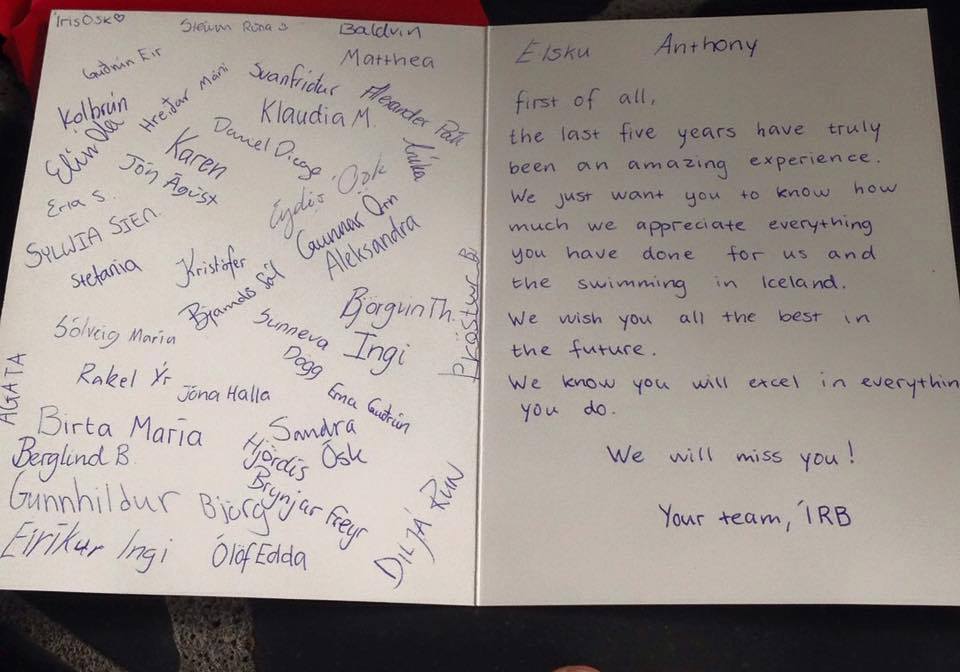 Íris Ósk♡
Steinn Rúna S
Baldvin
Guðrún Eir
Matthea
Hreiðar Máni
Svanfríður
Alexander Páll
Kolbrún
Klaudia M.
Elinóra
Daniel Diego
Karen
Jón Ágúst
Eydís Ósk
Erla S.
SYLWIA SIEN.
Gunnar Örn
Aleksandra
Stefanía
Kristófer
Þröstur Bj
Bjarndís Sól
Björgvin Th.
Sunneva
Sólveig María
Dögg
Ingi
AGATA
Rakel Ýr
Jóna Halla
Erna Guðrún
Birta María
Sandra
Ósk
Berglind B.
Hjördís
Gunnhildur Björg
Brynjar Freyr
DILJÁ RÚN
Eiríkur Ingi
Ólöf Edda
Elsku Anthony
first of all,
the last five years have truly
been an amazing experience.
We just want you to know how
much we appreciate everything
you have done for us and
the swimming in Iceland.
We wish you all the best in
the future.
We know you will excel in everything
you do.
We will miss you!
Your team, ÍRB